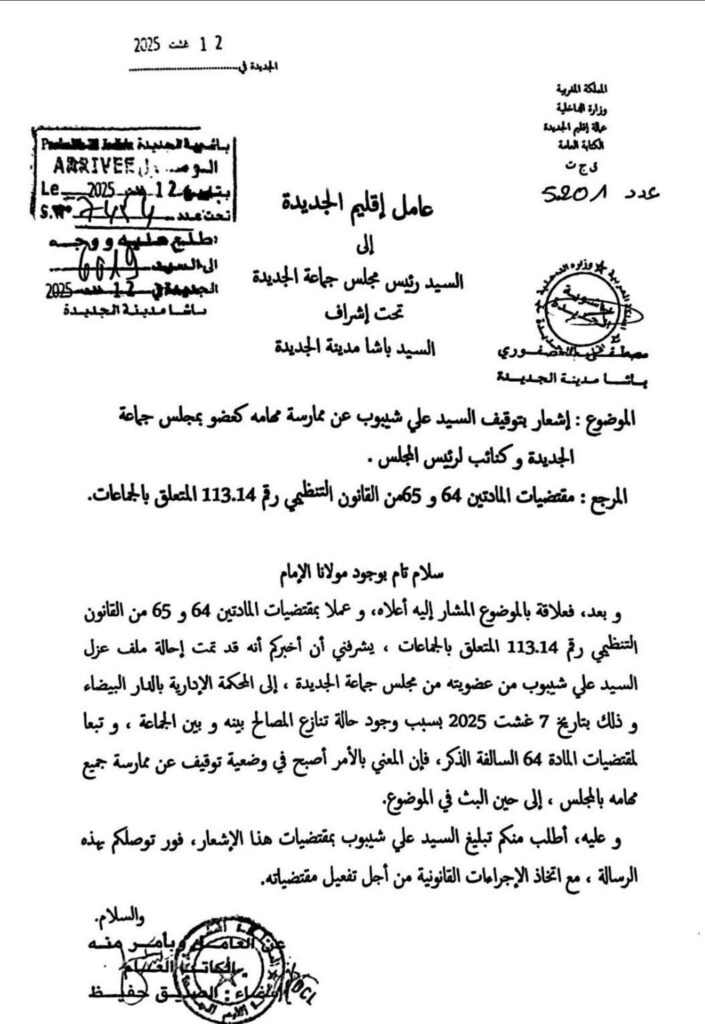 12 غشت 2025
الجديدة في
المملكة المغربية
وزارة الداخلية
عمالة إقليم الجديدة
الكتابة العامة
ق ج ت
عدد 5201
باشوية الجديدة
ARRIVEE
Le 12 2025
S.N°
تحت عدد
اطلع عليه ووجه
الى السيد
الجديدة في 12 2025
باشا مدينة الجديدة
عامل إقليم الجديدة
إلى
السيد رئيس مجلس جماعة الجديدة
تحت إشراف
السيد باشا مدينة الجديدة
باشوية
الجديدة
باشا مدينة الجديدة
الموضوع : إشعار بتوقيف السيد علي شيبوب عن ممارسة مهامه كعضو بمجلس جماعة
الجديدة و كنائب لرئيس المجلس .
المرجع : مقتضيات المادتين 64 و 65من القانون التنظيمي رقم 113.14 المتعلق بالجماعات.
سلام تام بوجود مولانا الإمام
و بعد، فعلاقة بالموضوع المشار إليه أعلاه، و عملا بمقتضيات المادتين 64 و 65 من القانون
التنظيمي رقم 113.14 المتعلق بالجماعات ، يشرفني أن أخبركم أنه قد تمت إحالة ملف عزل
السيد علي شيبوب من عضويته من مجلس جماعة الجديدة ، إلى المحكمة الإدارية بالدار البيضاء
و ذلك بتاريخ 7 غشت 2025 بسبب وجود حالة تنازع المصالح بينه و بين الجماعة ، و تبعا
لمقتضيات المادة 64 السالفة الذكر، فإن المعني بالأمر أصبح في وضعية توقيف عن ممارسة جميع
مهامه بالمجلس ، إلى حين البث في الموضوع.
و عليه، أطلب منكم تبليغ السيد علي شيبوب بمقتضيات هذا الإشعار، فور توصلكم بهذه
الرسالة ، مع اتخاذ الإجراءات القانونية من أجل تفعيل مقتضياته.
والسلام.
عن العامل وبأمر منه
الكاتب العام
إمضاء : الصديق حفيظ
DCL